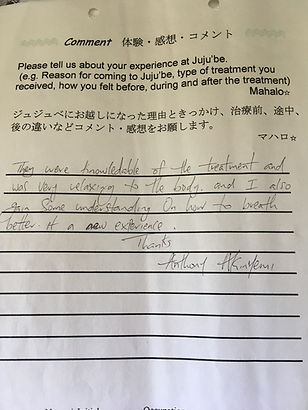 Comment 体験・感想・コメント
Please tell us about your experience at Juju'be.
(e.g. Reason for coming to Juju'be, type of treatment you
received, how you felt before, during and after the treatment)
Mahalo☆
ジュジュベにお越しになった理由ときっかけ、治療前、途中、
後の違いなどコメント・感想をお願します。
マハロ☆
They were knowledable of the treatment and
was very relaxing to the body. and I also
gain some understanding On how to breath
better. It a new experience.
Thanks
Anthony